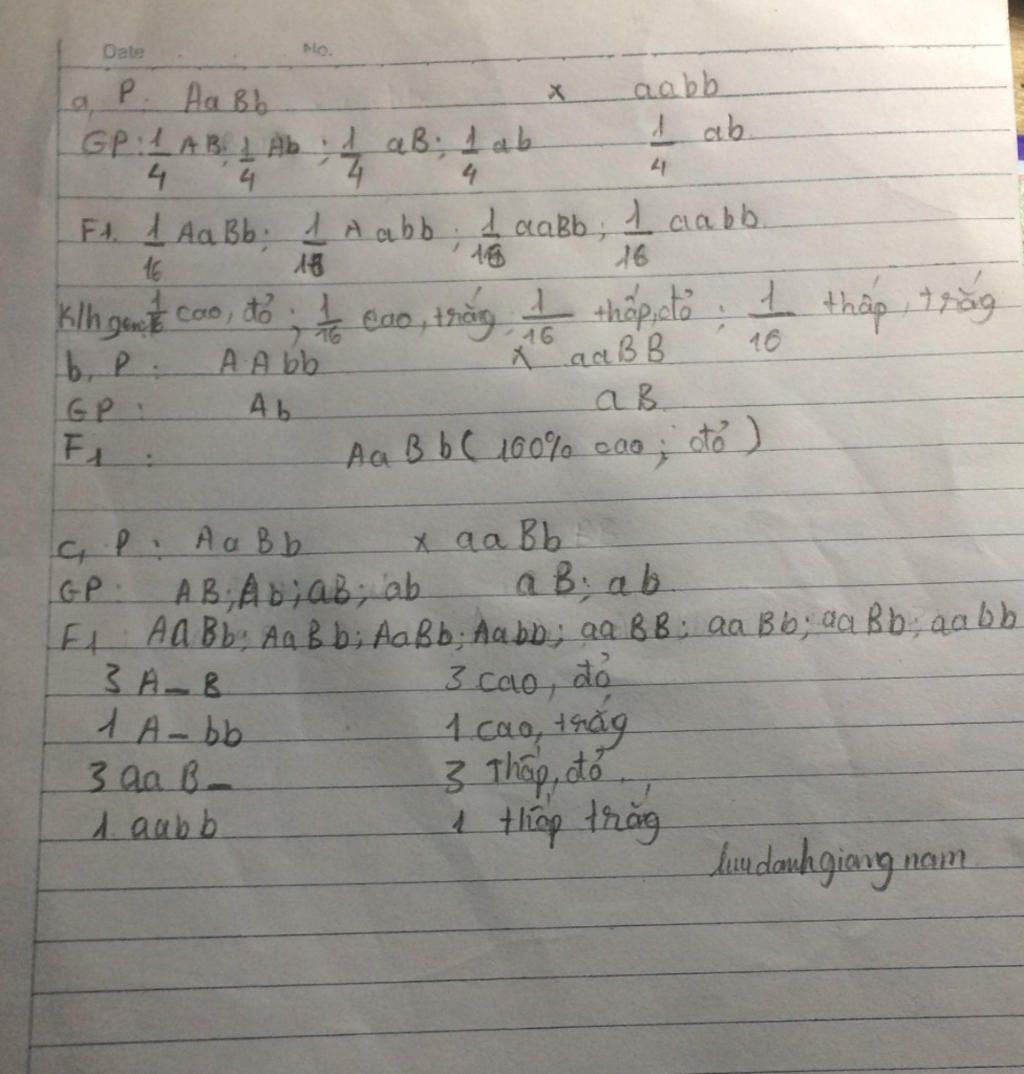 Date No.
a, P: AaBb x aabb
GP: 1/4 AB; 1/4 Ab; 1/4 aB; 1/4 ab 1/4 ab
F1. 1/16 AaBb; 1/16 Aabb; 1/16 aaBb; 1/16 aabb.
K/h 1/16 cao, đỏ; 1/16 cao, trắng 1/16 thấp, đỏ; 1/16 thấp, trắng
b, P: AAbb x aaBB
GP: Ab aB
F1: AaBb (100% cao; đỏ)
c, P: AaBb x aaBb
GP: AB; Ab; aB; ab aB; ab
F1 AaBb; AaBb; AaBb; Aabb; aaBB; aaBb; aaBb; aabb
3 A-B 3 cao, đỏ
1 A-bb 1 cao, trắg
3 aaB- 3 Thấp, đỏ.
1 aabb 1 thấp trắg
luudanhgiangnam